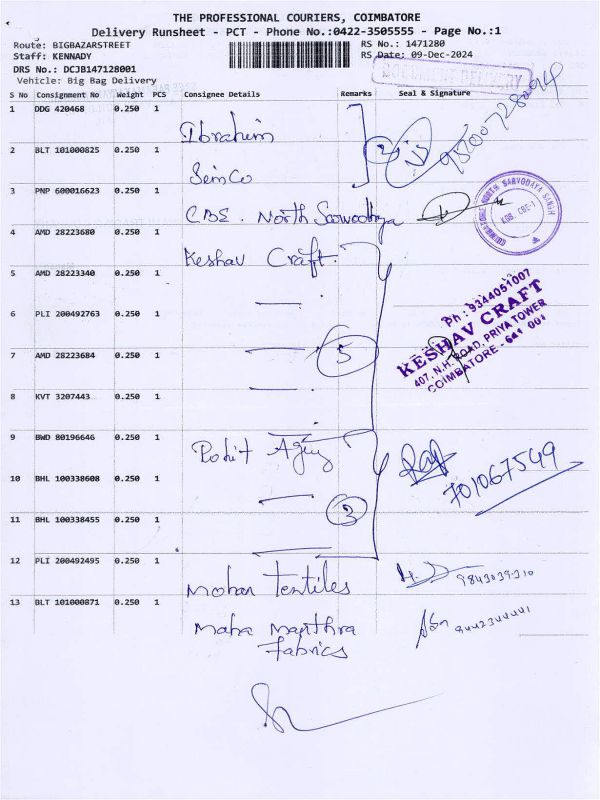 THE PROFESSIONAL COURIERS, COIMBATORE
Delivery Runsheet - PCT - Phone No.:0422-3505555 - Page No.:1
Route: BIGBAZARSTREET
RS No.: 1471280
Staff: KENNADY
RS Date: 09-Dec-2024
DRS No.: DCJB147128001
Vehicle: Big Bag Delivery
DOCUMENT DELIVERY
S No Consignment No Weight PCS Consignee Details Remarks Seal & Signature
1 DDG 420468 0.250 1 Ibrahim
2 BLT 101000825 0.250 1 SemCo 2
3 PNP 600016623 0.250 1 CBE. North Sarvodhya
COIMBATORE NORTH SARVODAYA SANGH
4 AMD 28223680 0.250 1 Keshav Craft.
5 AMD 28223340 0.250 1
6 PLI 200492763 0.250 1
Ph : 9344051007
KESHAV CRAFT
407, N.H. ROAD, PRIYA TOWER
COIMBATORE - 641 001
7 AMD 28223684 0.250 1 5
8 KVT 3207443 0.250 1
9 BWD 80196646 0.250 1
701067549
10 BHL 100338608 0.250 1
11 BHL 100338455 0.250 1 3
12 PLI 200492495 0.250 1 Mohan Textiles
13 BLT 101000871 0.250 1 Maha Manthra
Fabrics